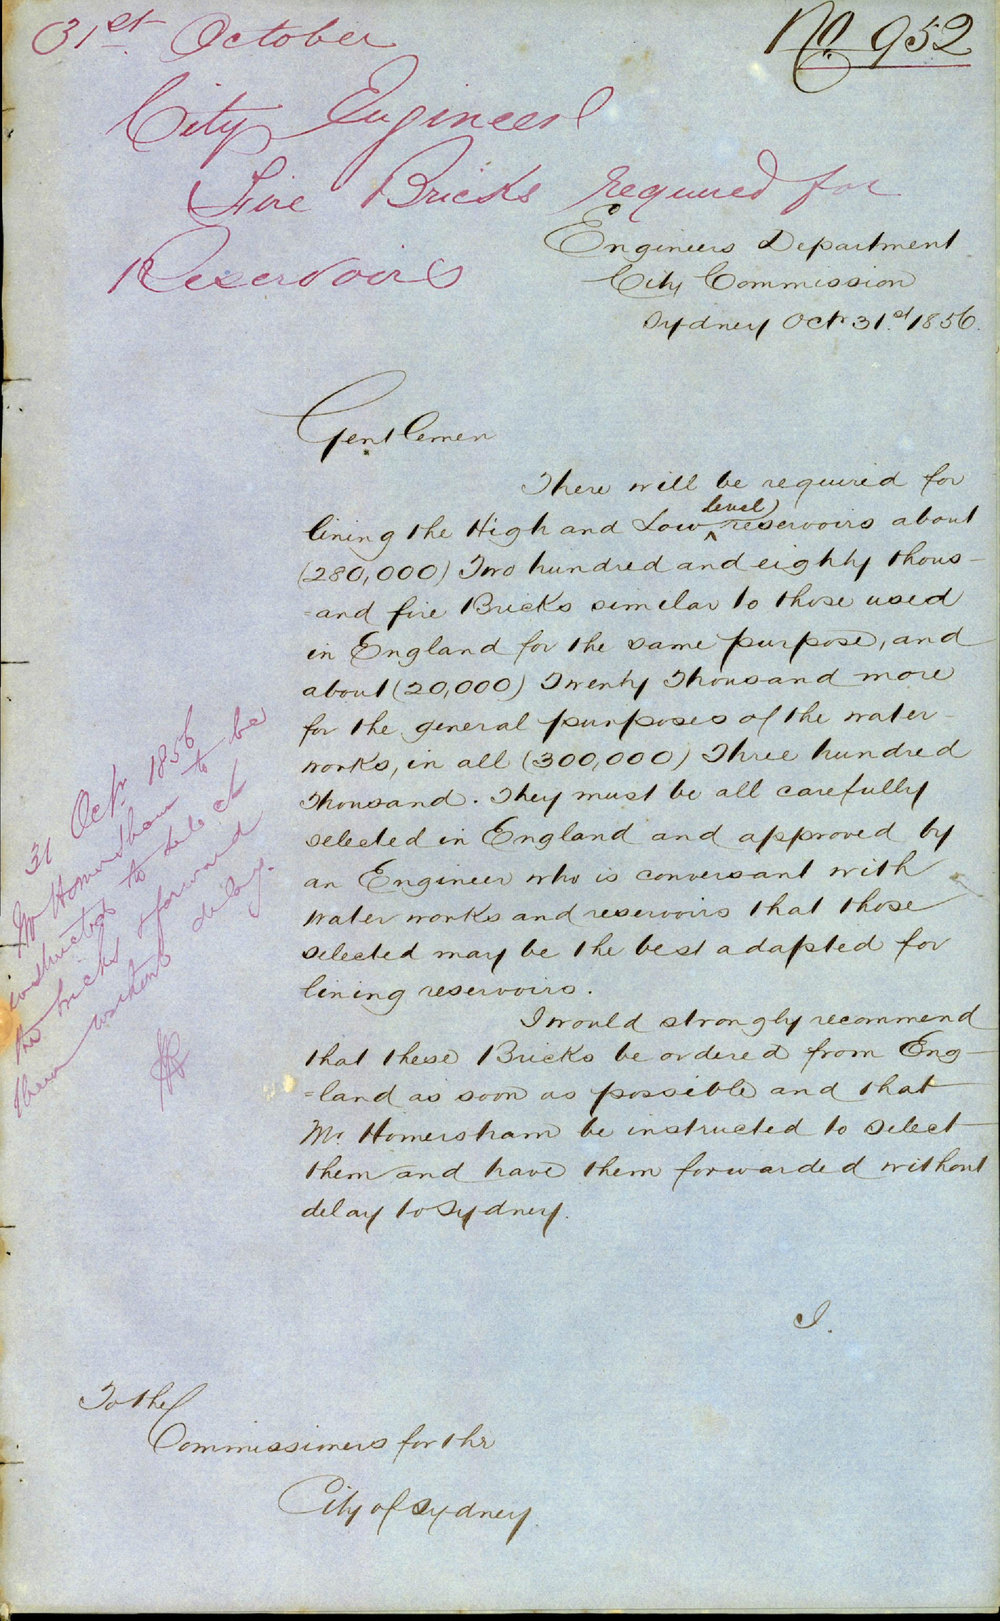 31st October
No 952
City Engineer
Fire Bricks required for
Reservoirs
Engineers Department
City Commission
Sydney Octr 31st 1856.
Gentlemen
There will be required for
level
lining the High and Low ^ reservoirs about
(280,000) Two hundred and eighty thous-
=and fire Bricks similar to those used
in England for the same purpose, and
about (20,000) Twenty Thousand more
for the general purposes of the water
works, in all (300,000) Three hundred
Thousand. They must be all carefully
selected in England and approved by
an Engineer who is conversant with
water works and reservoirs that those
selected may be the best adapted for
lining reservoirs.
I would strongly recommend
that these Bricks be ordered from Eng-
=land as soon as possible and that
Mr. Homersham be instructed to select
them and have them forwarded without
delay to Sydney.
I.
31 Octr 1856
Mr Homersham to be
instructed to select
the bricks & forward
them without delay.
To the
Commissioners for the
City of Sydney.